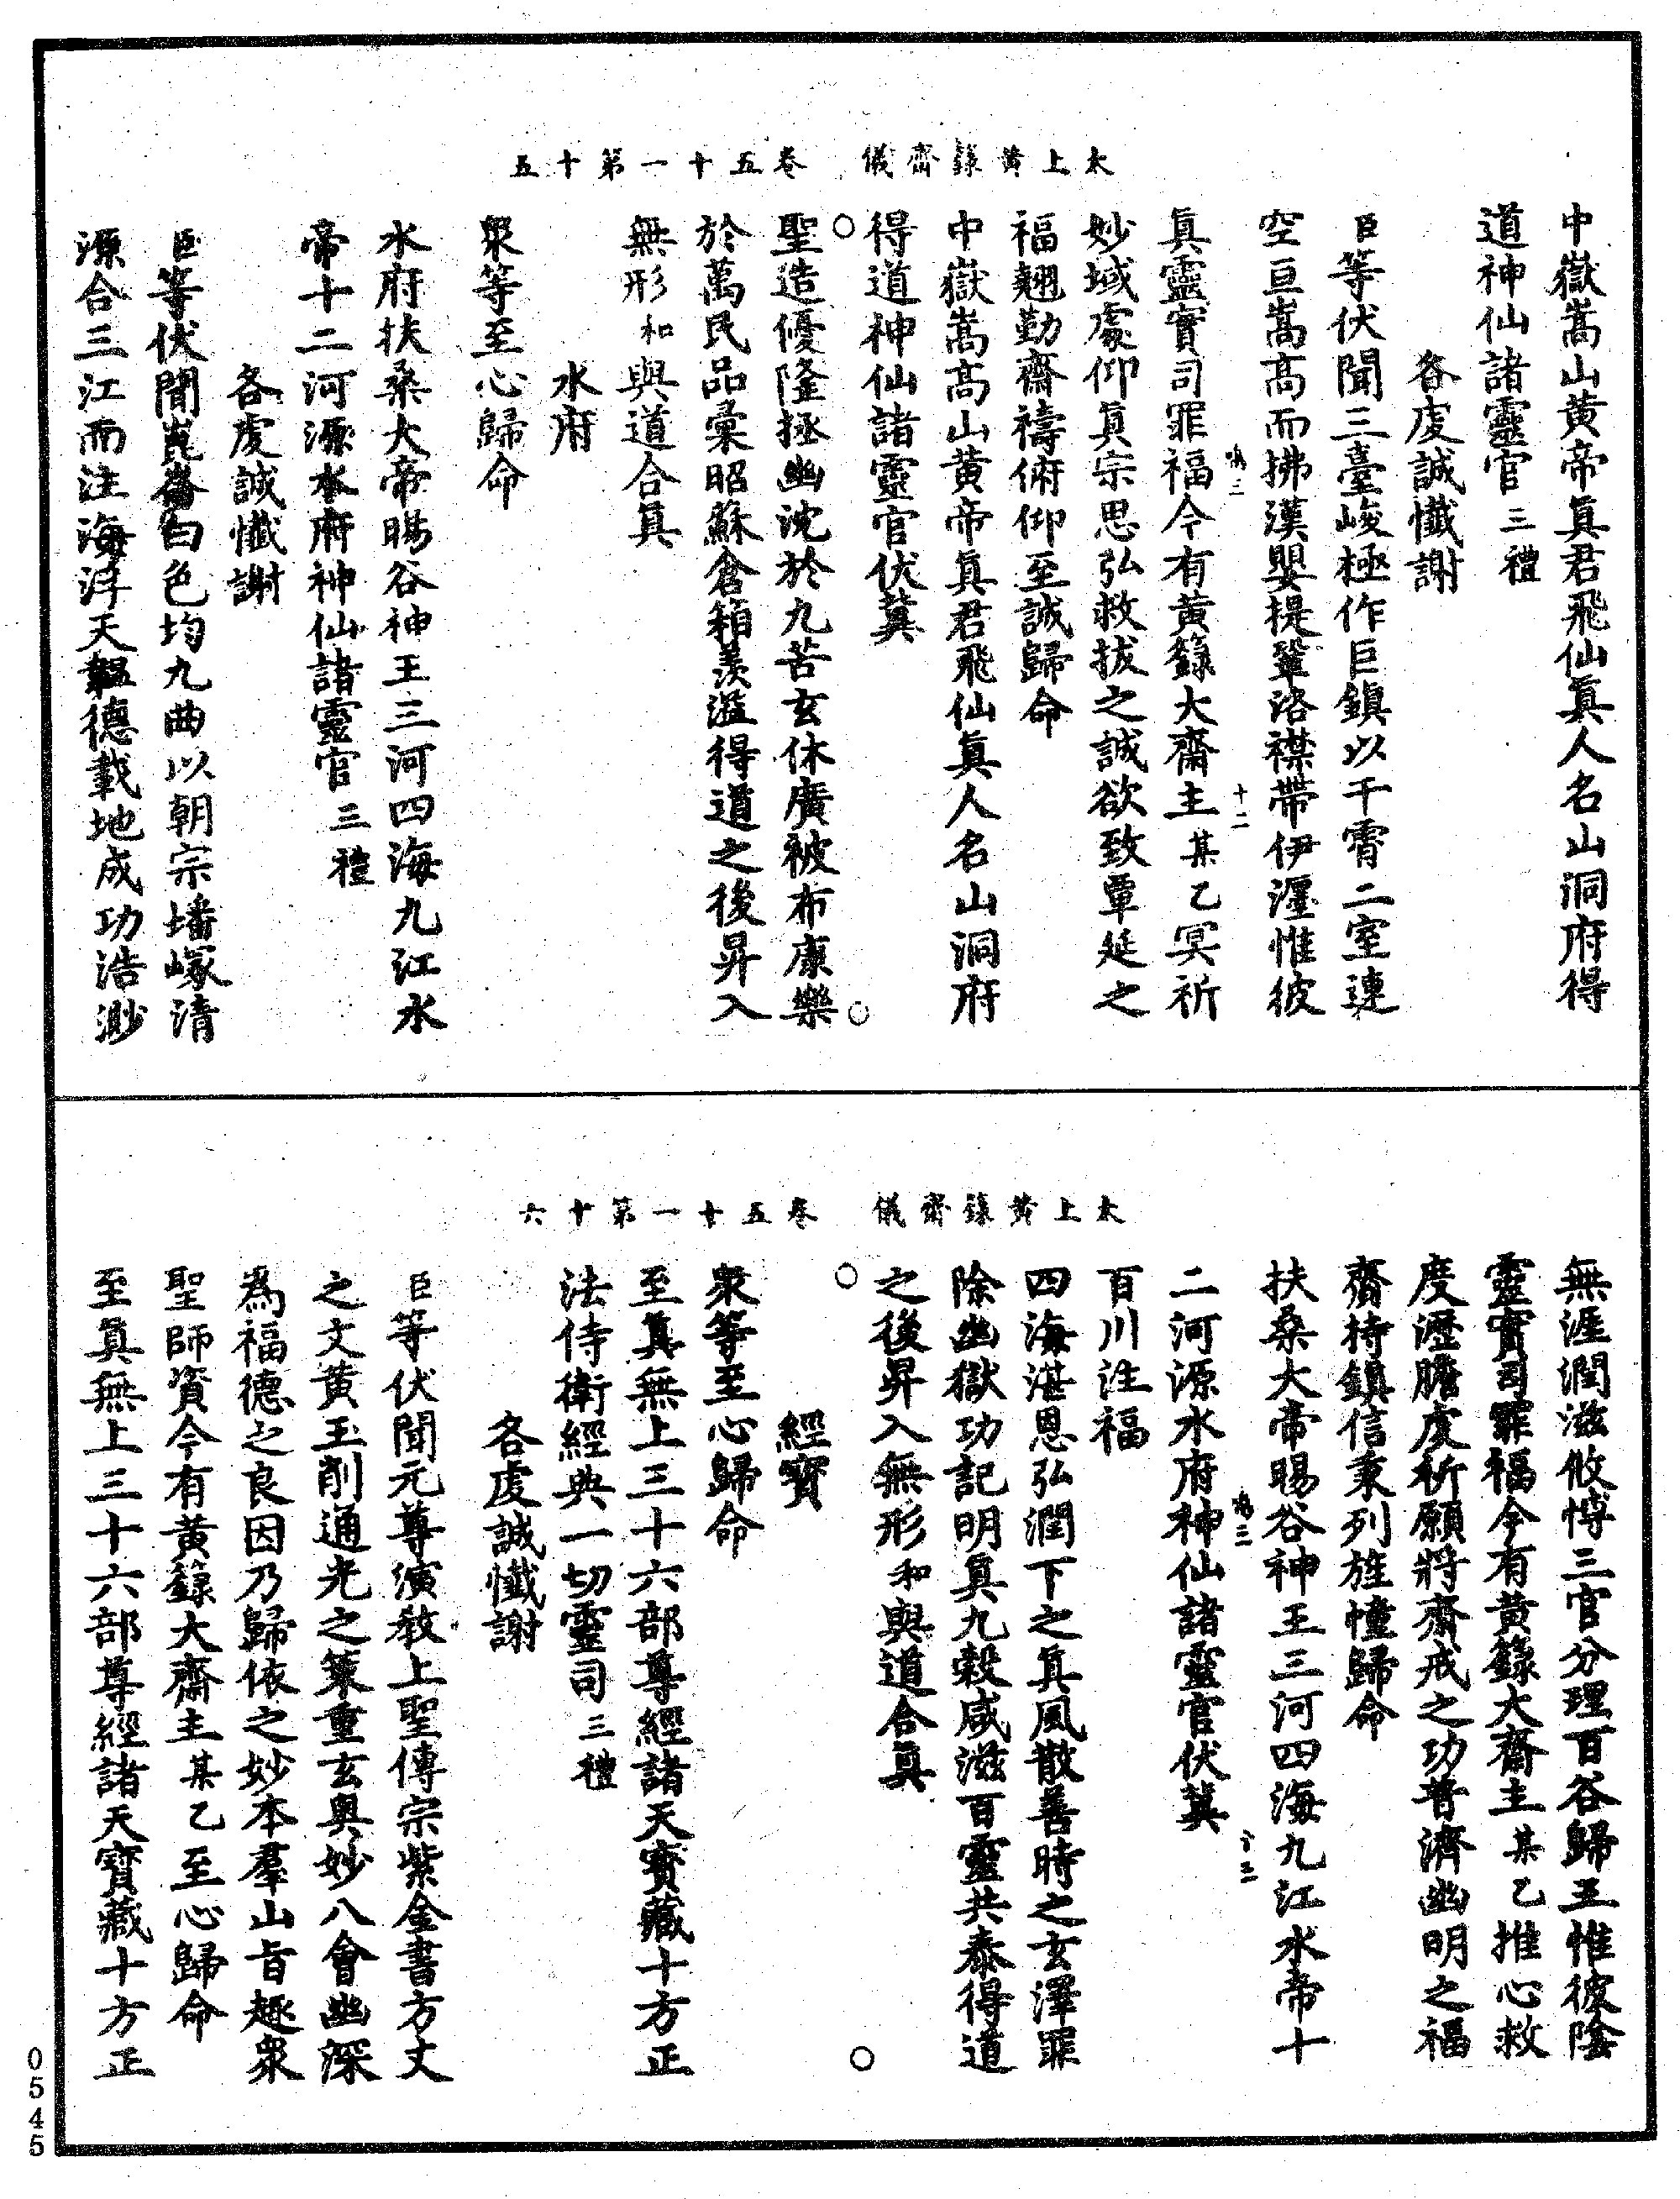 太上黃籙齋儀　卷五十一第十五
中嶽嵩山黃帝眞君飛仙眞人名山洞府得
道神仙諸靈官三禮
各虔誠懺謝
臣等伏聞三臺峻極作巨鎭以干霄二室連
空亘嵩高而拂漢嬰提鞏洛襟帶伊瀍惟彼
眞靈實司罪福今有黃籙大齋主某乙冥祈
妙域虔仰眞宗思弘救拔之誠欲致覃延之
福翹勤齋禱俯仰至誠歸命
中嶽嵩高山黃帝眞君飛仙眞人名山洞府
得道神仙諸靈官伏冀
聖造優隆拯幽沈於九苦玄休廣被布康樂
於萬民品彙昭蘇倉箱羨溢得道之後昇入
無形和與道合眞
水府
衆等至心歸命
水府扶桑大帝暘谷神王三河四海九江水
帝十二河源水府神仙諸靈官三禮
各虔誠懺謝
臣等伏聞崑崙白色均九曲以朝宗墦嵕清
源合三江而注海浮天韞德載地成功浩渺
太上黃籙齋儀　卷五十一第十六
無涯潤滋攸博三官分理百谷歸王惟彼陰
靈實司罪福今有黃籙大齋主某乙推心救
度瀝膽虔祈願將齋戒之功普濟幽明之福
齋持鎭信秉列旌幢歸命
扶桑大帝暘谷神王三河四海九江水帝十
二河源水府神仙諸靈官伏冀
百川注福
四海湛恩弘潤下之眞風散善時之玄澤罪
除幽獄功記明眞九穀咸滋百靈共泰得道
之後昇入無形和與道合眞
經寶
衆等至心歸命
至眞無上三十六部尊經諸天寶藏十方正
法侍衛經典一切靈司三禮
各虔誠懺謝
臣等伏聞元尊演教上聖傳宗紫金書方丈
之文黃玉削通光之策重玄奥妙八會幽深
爲福德之良因乃歸依之妙本羣山旨趣衆
聖師資今有黃籙大齋主某乙至心歸命
至眞無上三十六部尊經諸天寶藏十方正
0545